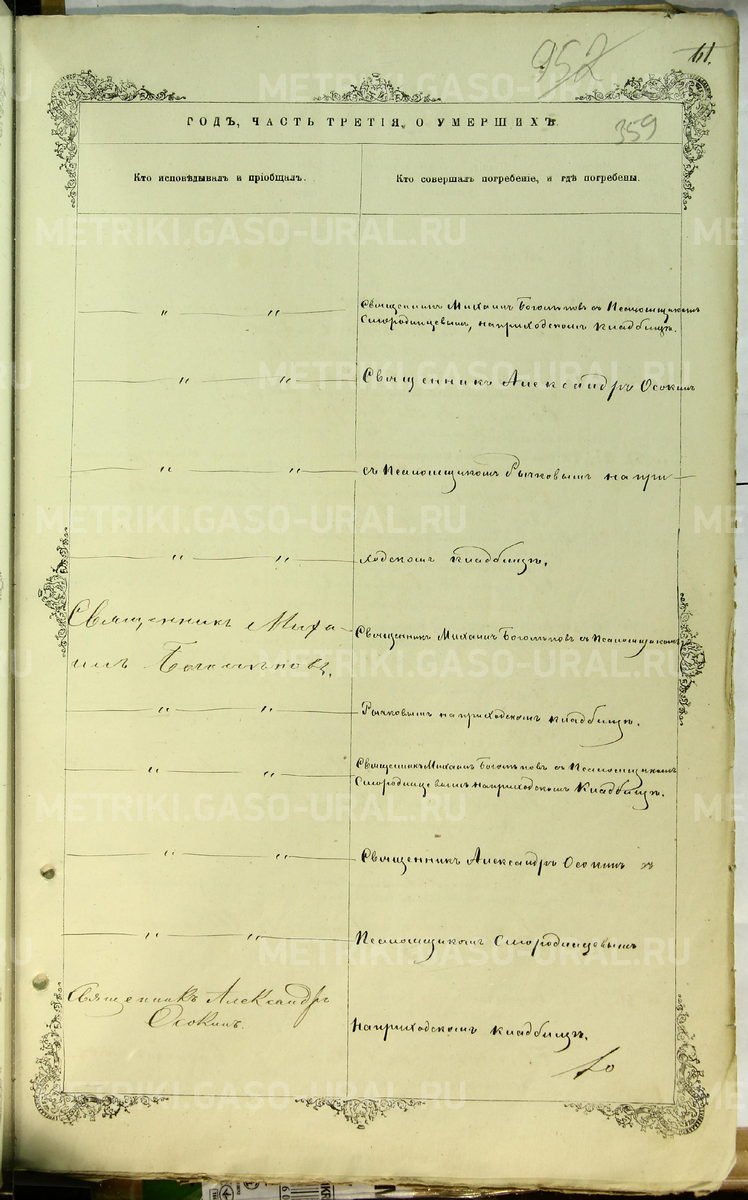 952
61.
359
ГОДЪ, ЧАСТЬ ТРЕТІЯ, О УМЕРШИХЪ
Кто исповѣдывалъ и пріобщалъ.
Кто совершалъ погребеніе, и гдѣ погребены.
" "
Священникъ Михаилъ Богомоловъ съ Псаломщикомъ
Смородинцевымъ, на приходскомъ кладбищѣ.
" "
Священникъ Александръ Осокинъ
" "
съ Псаломщикомъ Рычковымъ на при
" "
ходскомъ кладбищѣ.
Священникъ Миха
илъ
Священникъ Михаилъ съ Псаломщикомъ
" "
Рычковымъ на приходскомъ кладбищѣ.
" "
Священникъ Михаилъ съ Псаломщикомъ
Смородинцевымъ на приходскомъ кладбищѣ.
" "
Священникъ Александръ Осокинъ съ
" "
Псаломщикомъ Смородинцевымъ
Священникъ Александръ
Осокинъ.
на приходскомъ кладбищѣ.
10
METRIKI.GASO-URAL.RU